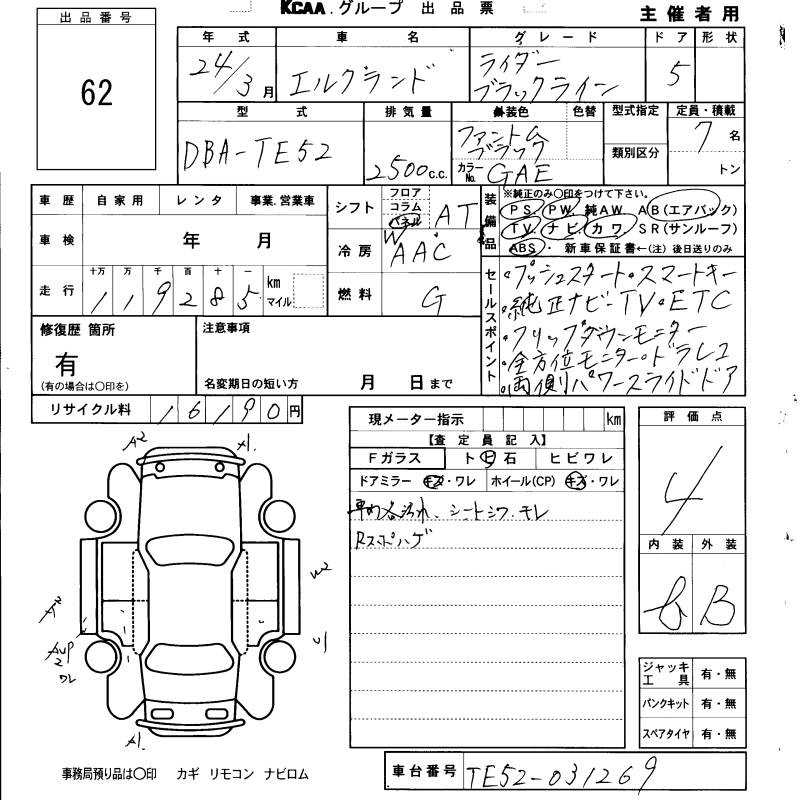 KCAA.グループ 出品票
主催者用
出品番号
62
年式 車名 グレード ドア 形状
24/3月 エルグランド ライダー 5
ブラックライン
型式 排気量 外装色 色替 型式指定 定員・積載
DBA-TE52 2500c.c. ファントム 7名
ブラック
カラーNo. GAE 類別区分 トン
車歴 自家用 レンタ 事業.営業車
車検 年 月
走行 十万 万 千 百 十 一
119285 km マイル
シフト フロア コラム パネル AT
冷房 WAAC
燃料 G
装備品 ※純正のみ〇印をつけて下さい。
PS. PW. 純AW AB(エアバック)
TV. ナビ カワ SR(サンルーフ)
ABS・新車保証書←(注)後日送りのみ
セールスポイント
・プッシュスタート・スマートキー
・純正ナビ-TV・ETC
・フリップダウンモニター
・全方位モニター・ドラレコ
・両側パワースライドドア
修復歴 箇所
有
(有の場合は〇印を)
注意事項
名変期日の短い方 月 日まで
リサイクル料 16190円
現メーター指示 km
【査定員記入】
Fガラス ト ビ 石 ヒビワレ
ドアミラー キズ・ワレ ホイール(CP) キズ・ワレ
車内各汚れ、シートシワ・モレ
Rスポハゲ
評価点
4
内装 外装
B
ジャッキ工具 有・無
パンクキット 有・無
スペアタイヤ 有・無
A2 A1
W2
A2
U1
2
ワレ
A1
事務局預り品は〇印 カギ リモコン ナビロム
車台番号 TE52-031269